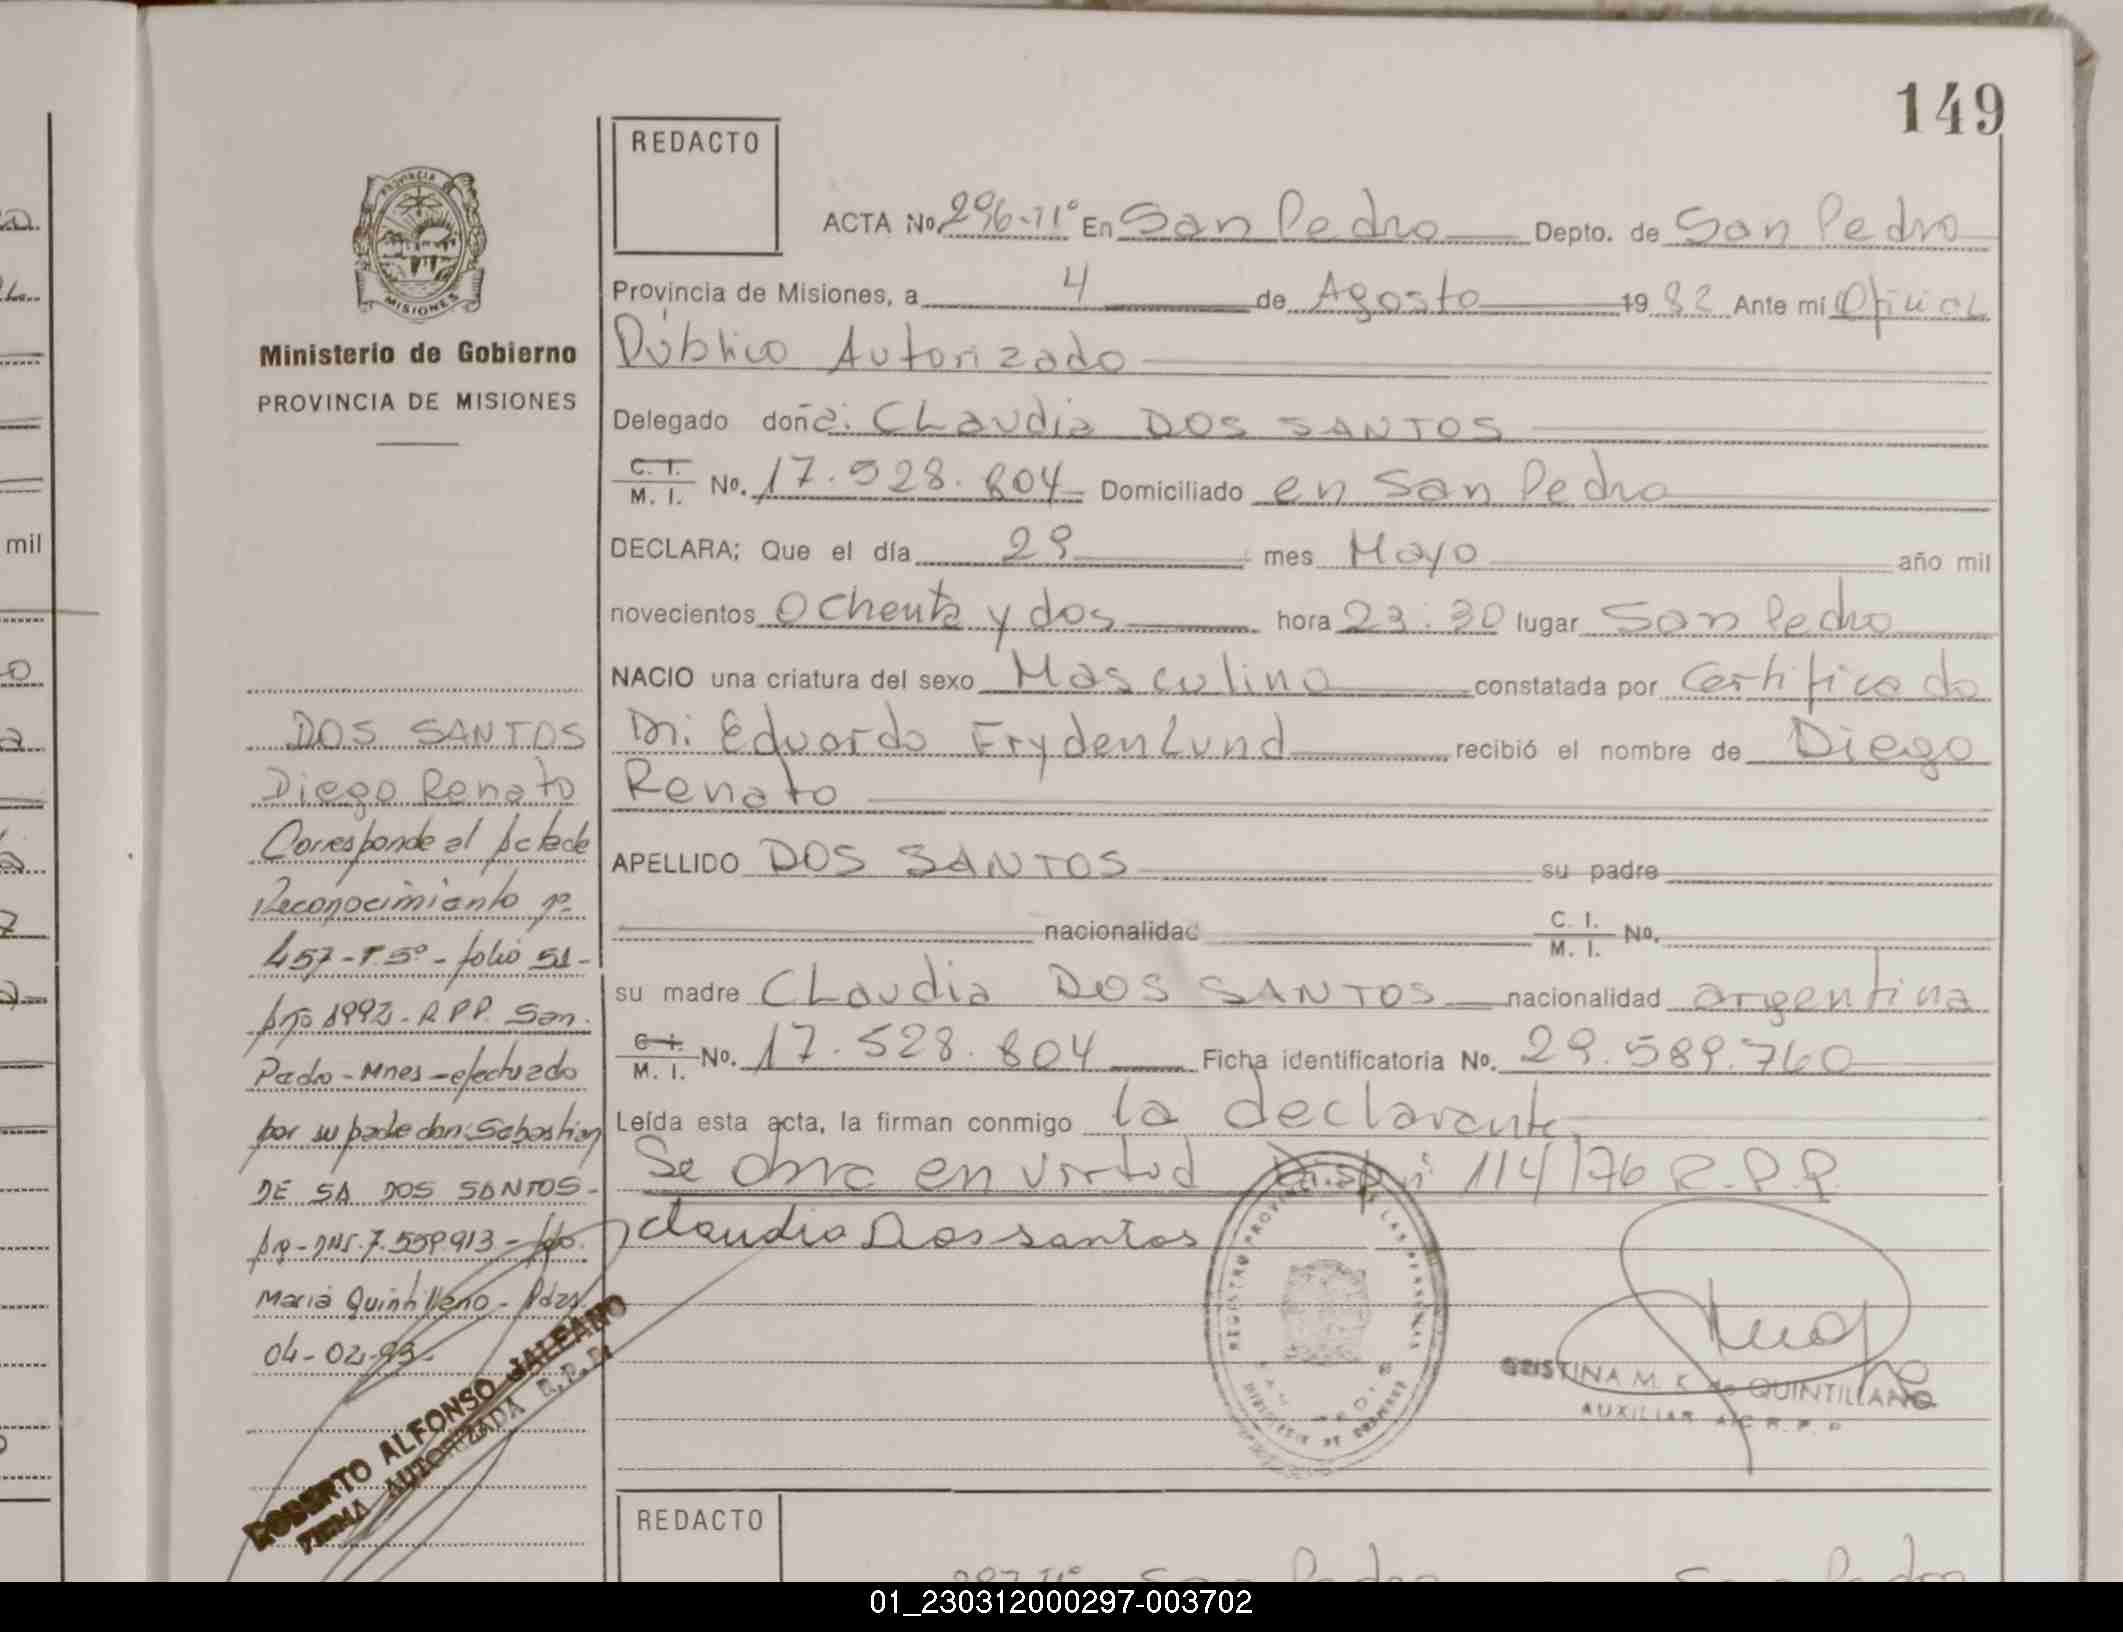 149
REDACTO
ACTA No. 296-IIº En San Pedro Depto. de San Pedro
Provincia de Misiones, a 4 de Agosto 1982 Ante mí Oficial
Público Autorizado
Delegado doña: Claudia DOS SANTOS
C. I. M. I. No. 17.528.804 Domiciliado en San Pedro
DECLARA; Que el día 29 mes Mayo año mil
novecientos Ochenta y dos hora 23:30 lugar San Pedro
NACIO una criatura del sexo Masculino constatada por Certificado
Dr: Eduardo FrydenLund recibió el nombre de Diego
Renato
APELLIDO DOS SANTOS su padre
nacionalidad C. I. M. I. No.
su madre Claudia DOS SANTOS nacionalidad argentina
C. I. M. I. No. 17.528.804 Ficha identificatoria No. 29.589.760
Leída esta acta, la firman conmigo la declarante,
Se obra en virtud Disp. nº 114/76 R.P.P.
Claudia Dos santos
CRISTINA M. K. de QUINTILLANO
AUXILIAR A/C R. P. P.
PROVINCIA
MISIONES
Ministerio de Gobierno
PROVINCIA DE MISIONES
DOS SANTOS
Diego Renato
Corresponde al Acta de
Reconocimiento nº
457-T.5º-folio 51-
Año 1992-R.P.P. San
Pedro-Mnes-efectuado
por su padre don: Sebastian
DE SA DOS SANTOS-
Ar-DNI.7.559.913-fdo.
Maria Quintilleno-Pdas.
04-02-93-
ROBERTO ALFONSO JALEANO
FIRMA AUTORIZADA R.P.P.
REDACTO
297-IIº San Pedro San Pedro
mil
01_230312000297-003702